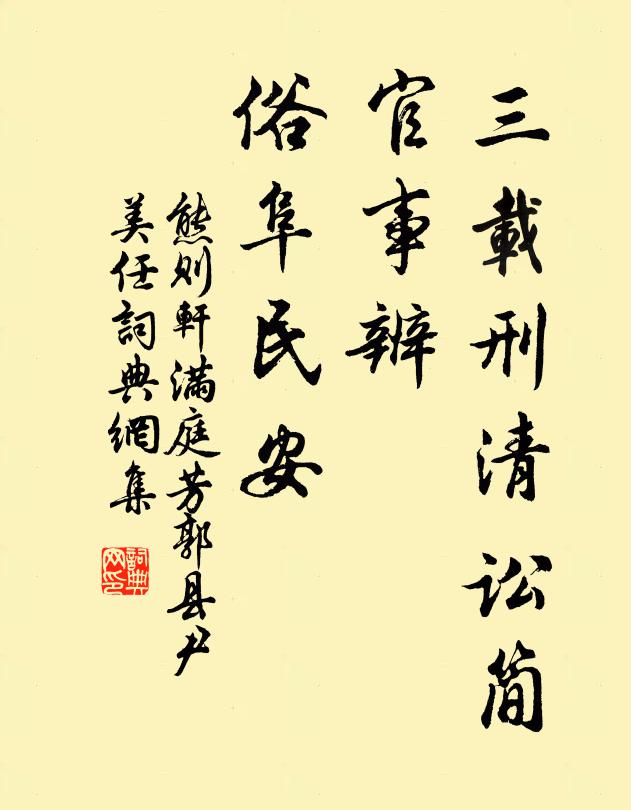 三載刑清讼简
官事辨
俗阜民安
熊则軒满庭芳郭县尹
美任詞典網集
詞典網印